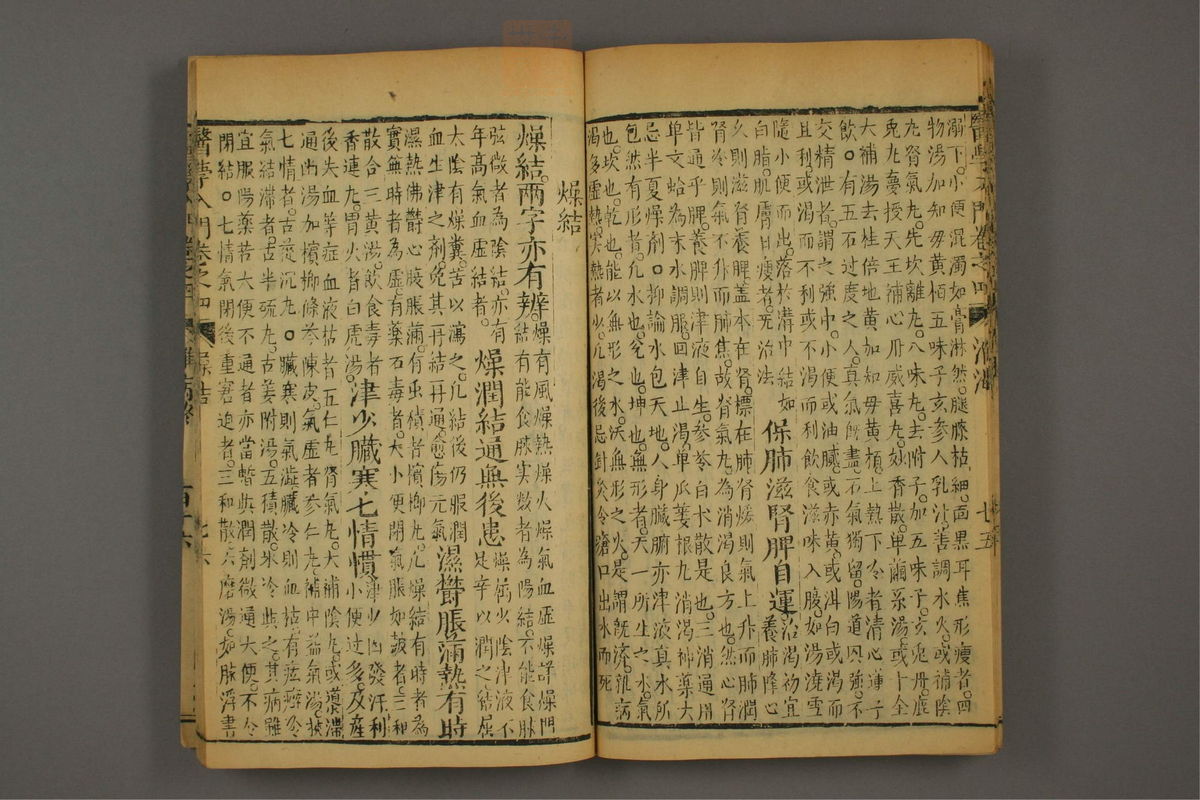 溺下小便混濁如膏淋然腿膝枯細面黑耳焦形瘦者四
物湯加知母黃栢五味子玄參人乳汁善調水火或補陰
丸腎氣丸先坎離丸八味丸去附子加五味子玄兔丹鹿
兎丸憂授天王補心丹威喜丸妙香散單繭絲湯或十全
大補湯去桂倍地黃加知母黃栢上熱下冷者清心蓮子
飲。有五石過度之人真氣旣盡石氣獨留陽道興強不
交精泄者謂之強中小便或油膩或赤黃或泔白或渴而
且利或渴而不利或不渴而利飲食滋味入腹如湯澆雪
隨小便而出落於溝中結如
白脂肌膚日瘦者無治法
保肺滋腎脾自運
治渴初宜
養肺降心
久則滋腎養脾蓋本在腎標在肺腎煖則氣上升而肺潤
腎冷則氣不升而肺焦故腎氣丸為消渴良方也然心腎
皆通乎脾養脾則津液自生參苓白朮散是也三消通用
單文蛤為末水調服回津止渴單瓜蔞根丸消渴神藥大
忌半夏燥劑。抑論水包天地人身臟腑亦津液真水所
包然有形者凡水也兊也坤也無形者天一所生之水氣
也坎也乾也能以無形之水沃無形之火是謂旣濟雜病
渴多虛熱實熱者少凡渴後忌針灸令瘡口出水而死
燥結
燥結兩字亦有辨
燥有風燥熱燥火燥氣血虛燥詳燥門
結有能食脉實數者為陽結不能食脉
弦微者為陰結亦有
年高氣血虛結者
燥潤結通無後患
燥屬少陰津液不
足辛以潤之結屬
太陰有燥糞苦以瀉之凡結後仍服潤
血生津之劑免其再結再通愈傷元氣
濕欝脹滿熱有時
濕熱怫欝心腹脹滿有虫積者檳榔丸凡燥結有時者為
實無時者為虛有藥石毒者大小便閉氣脹如皷者三和
散合三黃湯飲食毒者
香連丸胃火者白虎湯
津少臟寒七情慣
津少因發汗利
小便過多及產
後失血等症血液枯者五仁丸腎氣丸大補陰丸或導滯
通幽湯加檳榔條芩陳皮氣虛者參仁丸補中益氣湯挾
七情者古蓯沉丸。臟寒則氣澁臟冷則血枯有痃癖冷
氣結滯者古半硫丸古姜附湯五積散氷冷與之其病雖
宜服陽藥若大便不通者亦當暫與潤劑微通大便不令
閉結。七情氣閉後重窘迫者三和散六磨湯如脉浮晝
醫學入門卷之四
燥結
七六
醫學入門卷之四
消渴
七五